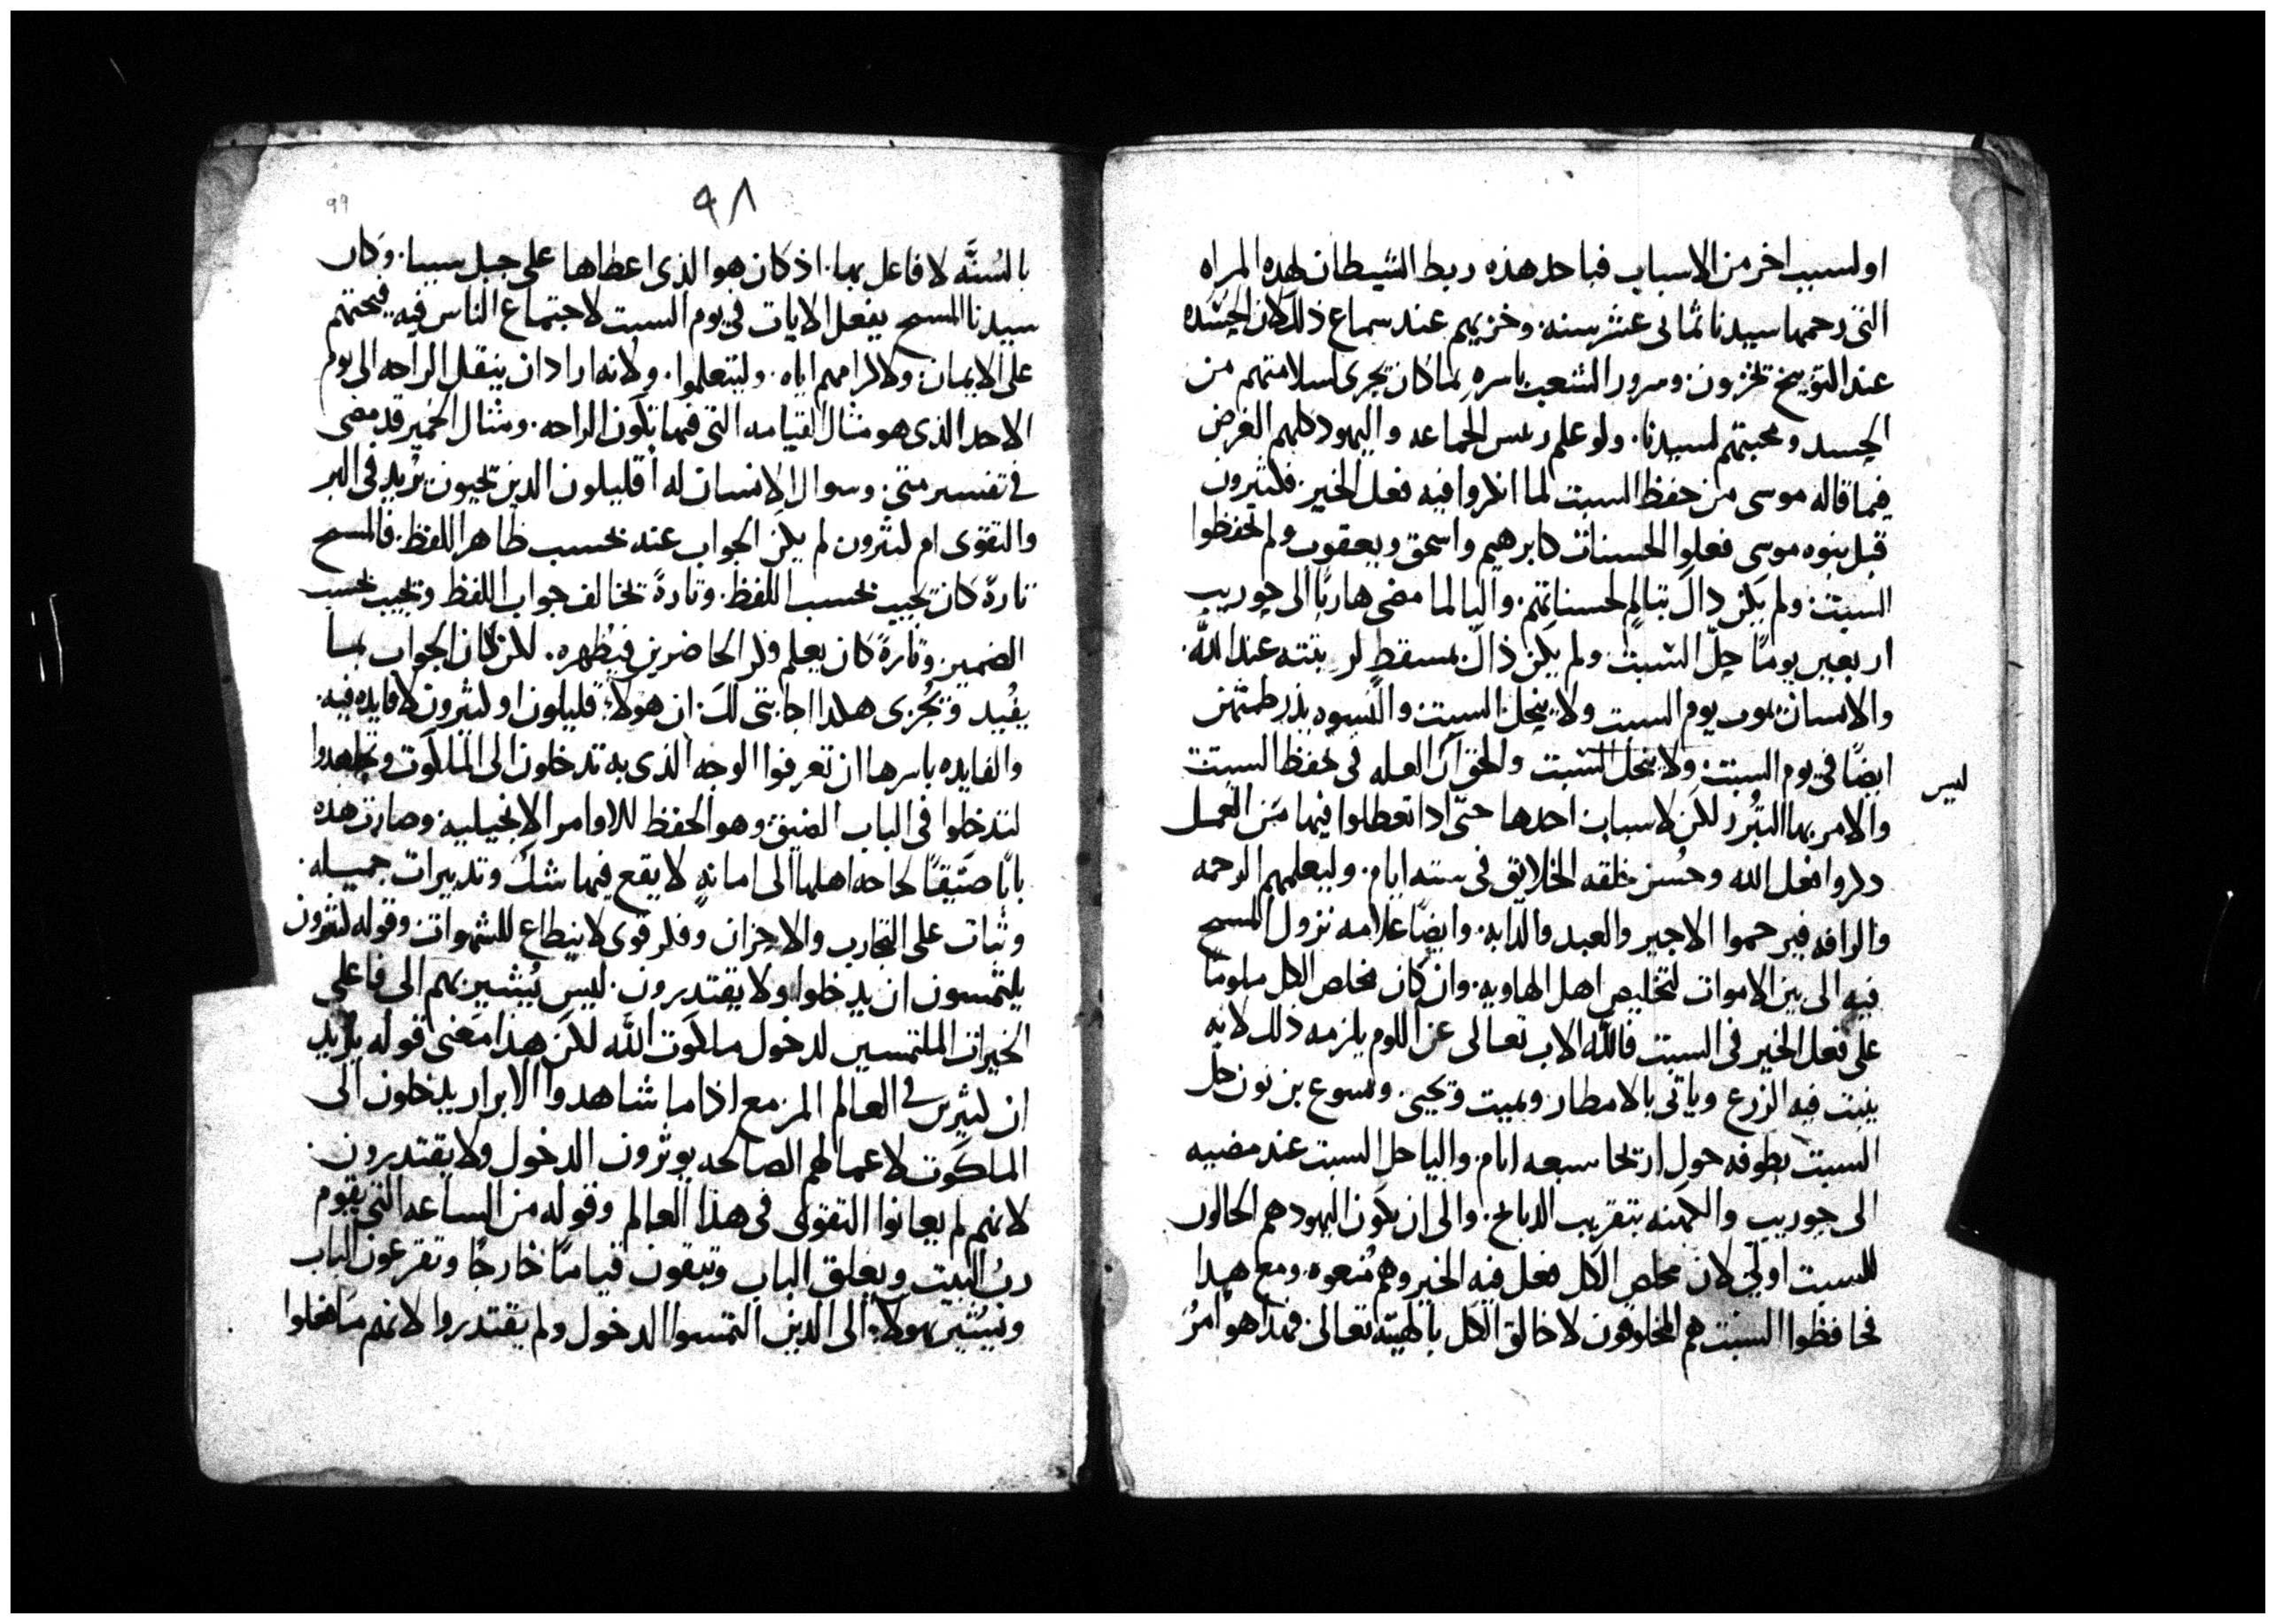 او لسبب اخر من الاسباب فباحد هذه ربط الشيطان لهذه المراه
التى رحمها سيدنا ثمانى عشر سنه. وخزيهم عند سماع ذلك لان الحسده
عند التوبيخ يخزون. وسرور الشعب باسره لما كان يجرى لسلامتهم من
الحسد ومحبتهم لسيدنا. ولو علم ريس الجماعه واليهود كلهم الغرض
فيما قاله موسى من حفظ السبت لما انكروا فيه فعل الخير. فكثيرون
قبل بنوه موسى فعلوا الحسنات كابرهيم واسحق ويعقوب ولم يحفظوا
السبت. ولم يكن ذاك بثالم لحسناتهم. واليا لما مضى هاربًا الى حوريب
اربعين يومًا حلّ السبت ولم يكن ذاك بمسقط لرتبته عند الله.
والانسان يموت يوم السبت ولا ينحل السبت والنسوه يذر طمثهن
ايضًا فى يوم السبت. ولا ينحل السبت والحق ان العله فى حفظ السبت
ليس
والامر بها التبرر لكن لاسباب احدها حتى اذا تعطلوا فيها من العمل
ذكروا فعل الله وحُسن خلقه الخلايق فى سته ايام. وليعلمهم الرحمه
والرافه فيرحموا الاجير والعبد والدابه. وايضًا علامه نزول المسيح
فيه الى بين الاموات لتخليص اهل الهاويه. وان كان مخلص الكل ملومًا
على فعل الخير فى السبت فالله الاب تعالى عن اللوم يلزمه ذلك لانه
ينبت فيه الزرع وياتى بالامطار ويميت ويحيى. ويسوع بن نون حل
السبت بطوفه حول اريحا سبعه ايام. واليا حل السبت عند مضييه
الى حوريب والكهنه بتقريب الذبايح. والى ان يكون اليهود هم الحالون
للسبت اولى لان مخلص الكل فعل فيه الخير وهم مُنعوه. ومع هذا
فحافظوا السبت هم المخلوقون لا خالق الكل بالهيته تعالى فهذا هو امرُ
٩٨
99
بالسُنَّه لا فاعل بها. اذ كان هو الذى اعطاها على جبل سينا. وكان
سيدنا المسيح يفعل الايات فى يوم السبت لاجتماع الناس فيه فيحثهم
على الايمان. ولاكرامهم اياه. وليتعلموا. ولانه اراد ان ينقل الراحه الى يوم
الاحد الذى هو مثال القيامه التى فيها تكون الراحه. ومثال الخمير قد مضى
فى تفسير متى. وسوال الانسان له أقليلون الذين يحيون يريد فى البر
والتقوى ام كثيرون لم يكن الجواب عنه بحسب ظاهر اللفظ. فالمسيح
تارةً كان يجيب بحسب اللفظ. وتارةً يخالف جواب اللفظ ويجيب بحسب
الضمير. وتارةً كان يعلم فكر الحاضرين فيظهره. لكن كان الجواب بما
يفُيد ويجُرى هكذا اجابتى لك ان هولاء قليلون او كثيرون لا فايده فيه.
والفايده باسرها ان تعرفوا الوجه الذى به تدخلون الى الملكوت وتجاهدوا
لتدخلوا فى الباب الضيق. وهو الحفظ للاوامر الانجيليه. وصارت هذه
بابًا ضيقًا لحاجه اهلها الى امانهٍ لا يقع فيها شك وتدبيرات جميله.
وثبات على التجارب والاحزان وفكر قوى لا ينطاع للشهوات. وقوله كثيرون
يلتمسون ان يدخلوا ولا يقتدرون. ليس يُشير بهم الى فاعلى
الخيرات الملتمسين لدخول ملكوت الله لكن هذا معنى قوله يريد
ان كثيرين فى العالم المزمع اذا ما شاهدوا الابرار يدخلون الى
الملكوت لاعمالهم الصالحه يوثرون الدخول ولا يقتدرون.
لانهم لم يعانوا التقوى فى هذا العالم وقوله من الساعه التى يقوم
ربُ البيت ويغلق الباب وتبقون قيامًا خارجًا وتقرعون الباب
ويُشير بهولاء الى الذين التمسوا الدخول ولم يقتدروا لانهم ما فعلوا